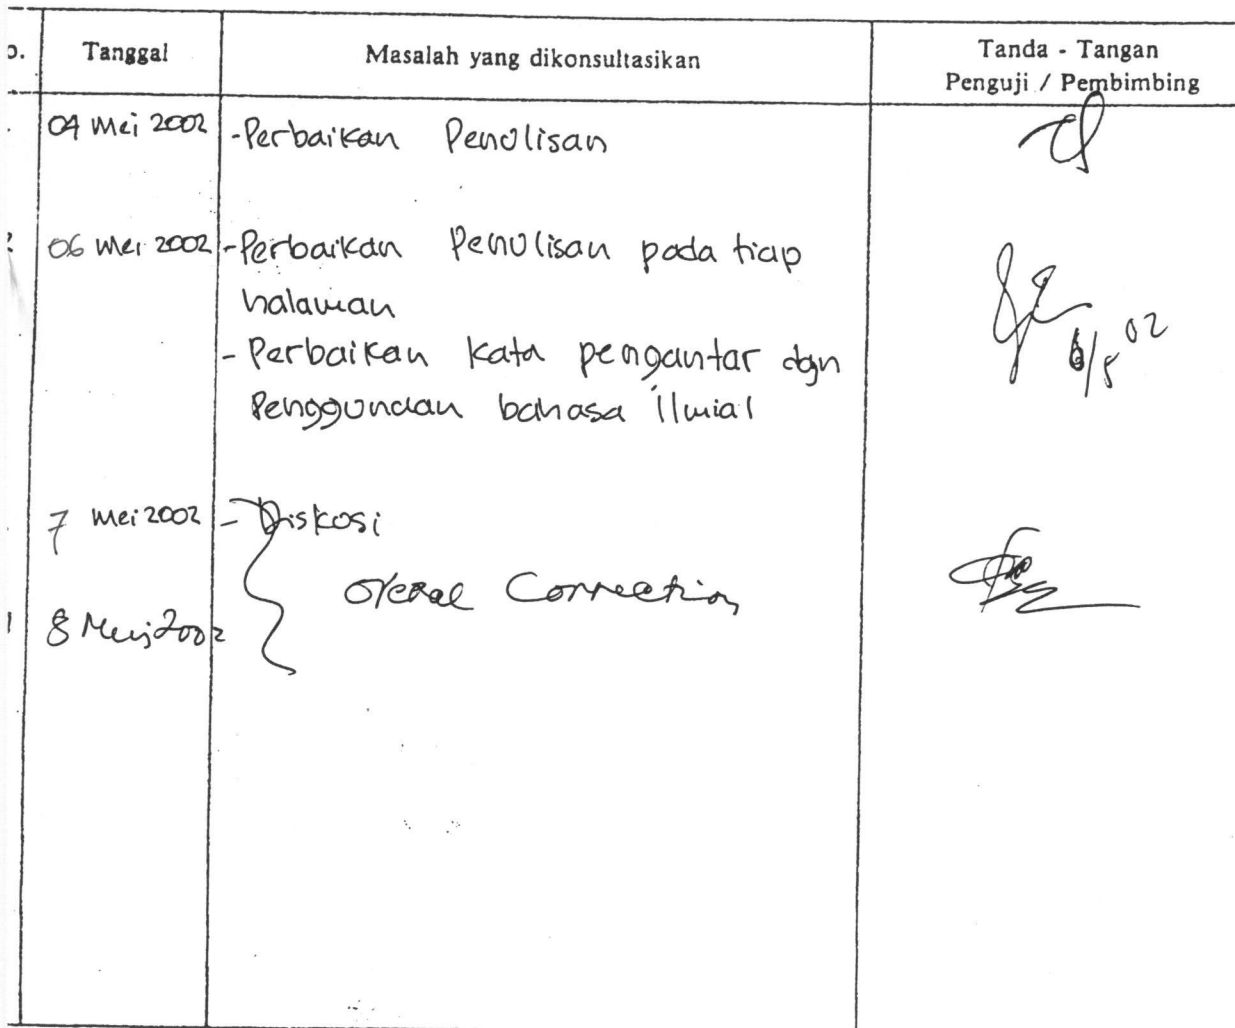 Tanggal
Masalah yang dikonsultasikan
Tanda - Tangan
Penguji / Pembimbing
04 Mei 2002
-Perbaikan Penulisan
06 Mei 2002
-Perbaikan Penulisan pada tiap
halaman
- Perbaikan kata pengantar dgn
Penggunaan bahasa Ilmial
6/5 02
7 Mei 2002
- Diskosi
Correction
8 Mei 2002